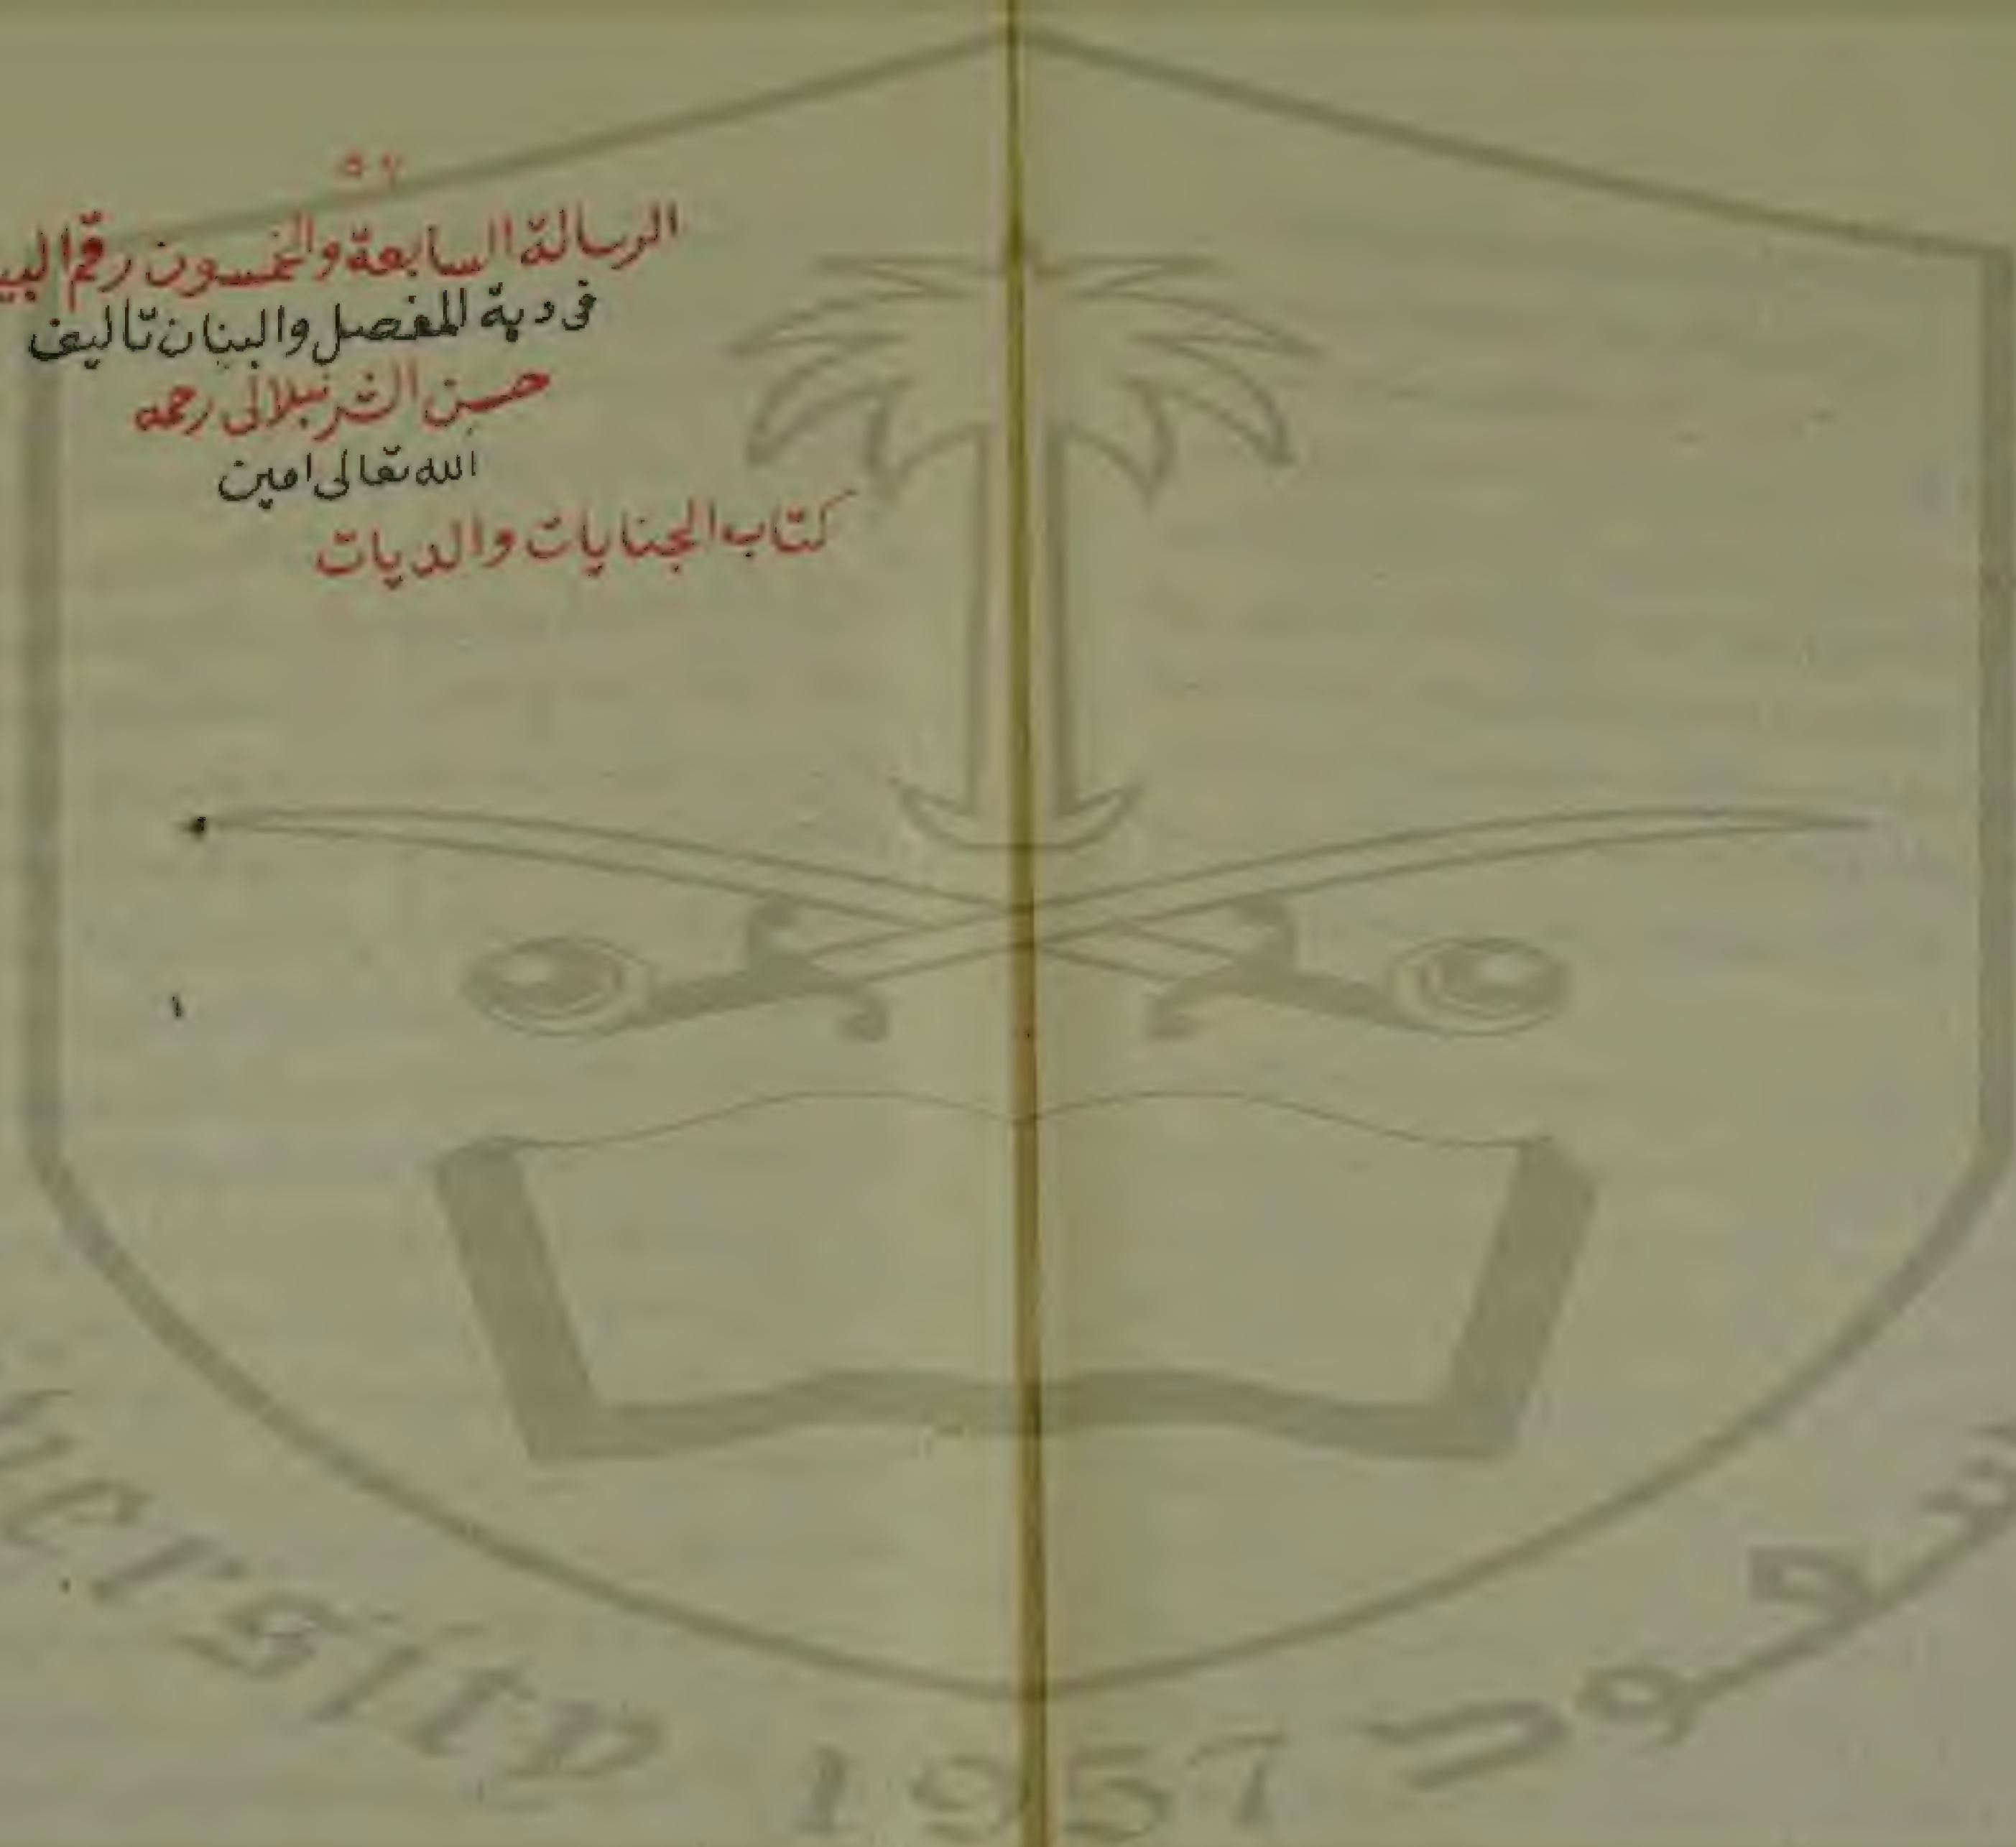 ٥٧
الرسالة السابعة والخمسون رقم
فى دية المفصل والبنان تأليف
حسن الشرنبلالى رحمه
الله تعالى امين
كتاب الجنايات والديات
١
1957